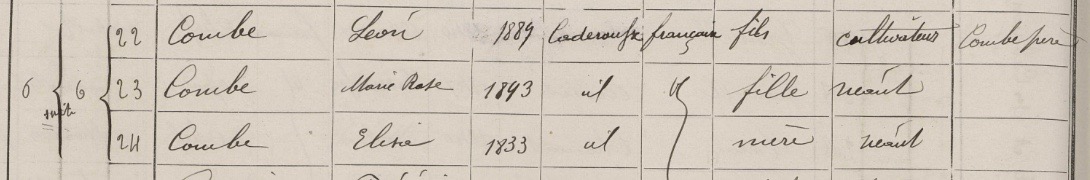 22 Combe Léon 1889 Caderousse français fils cultivateur Combe père
6 suite 6 23 Combe Marie Rose 1893 id id fille néant
24 Combe Elisa 1833 id mère néant